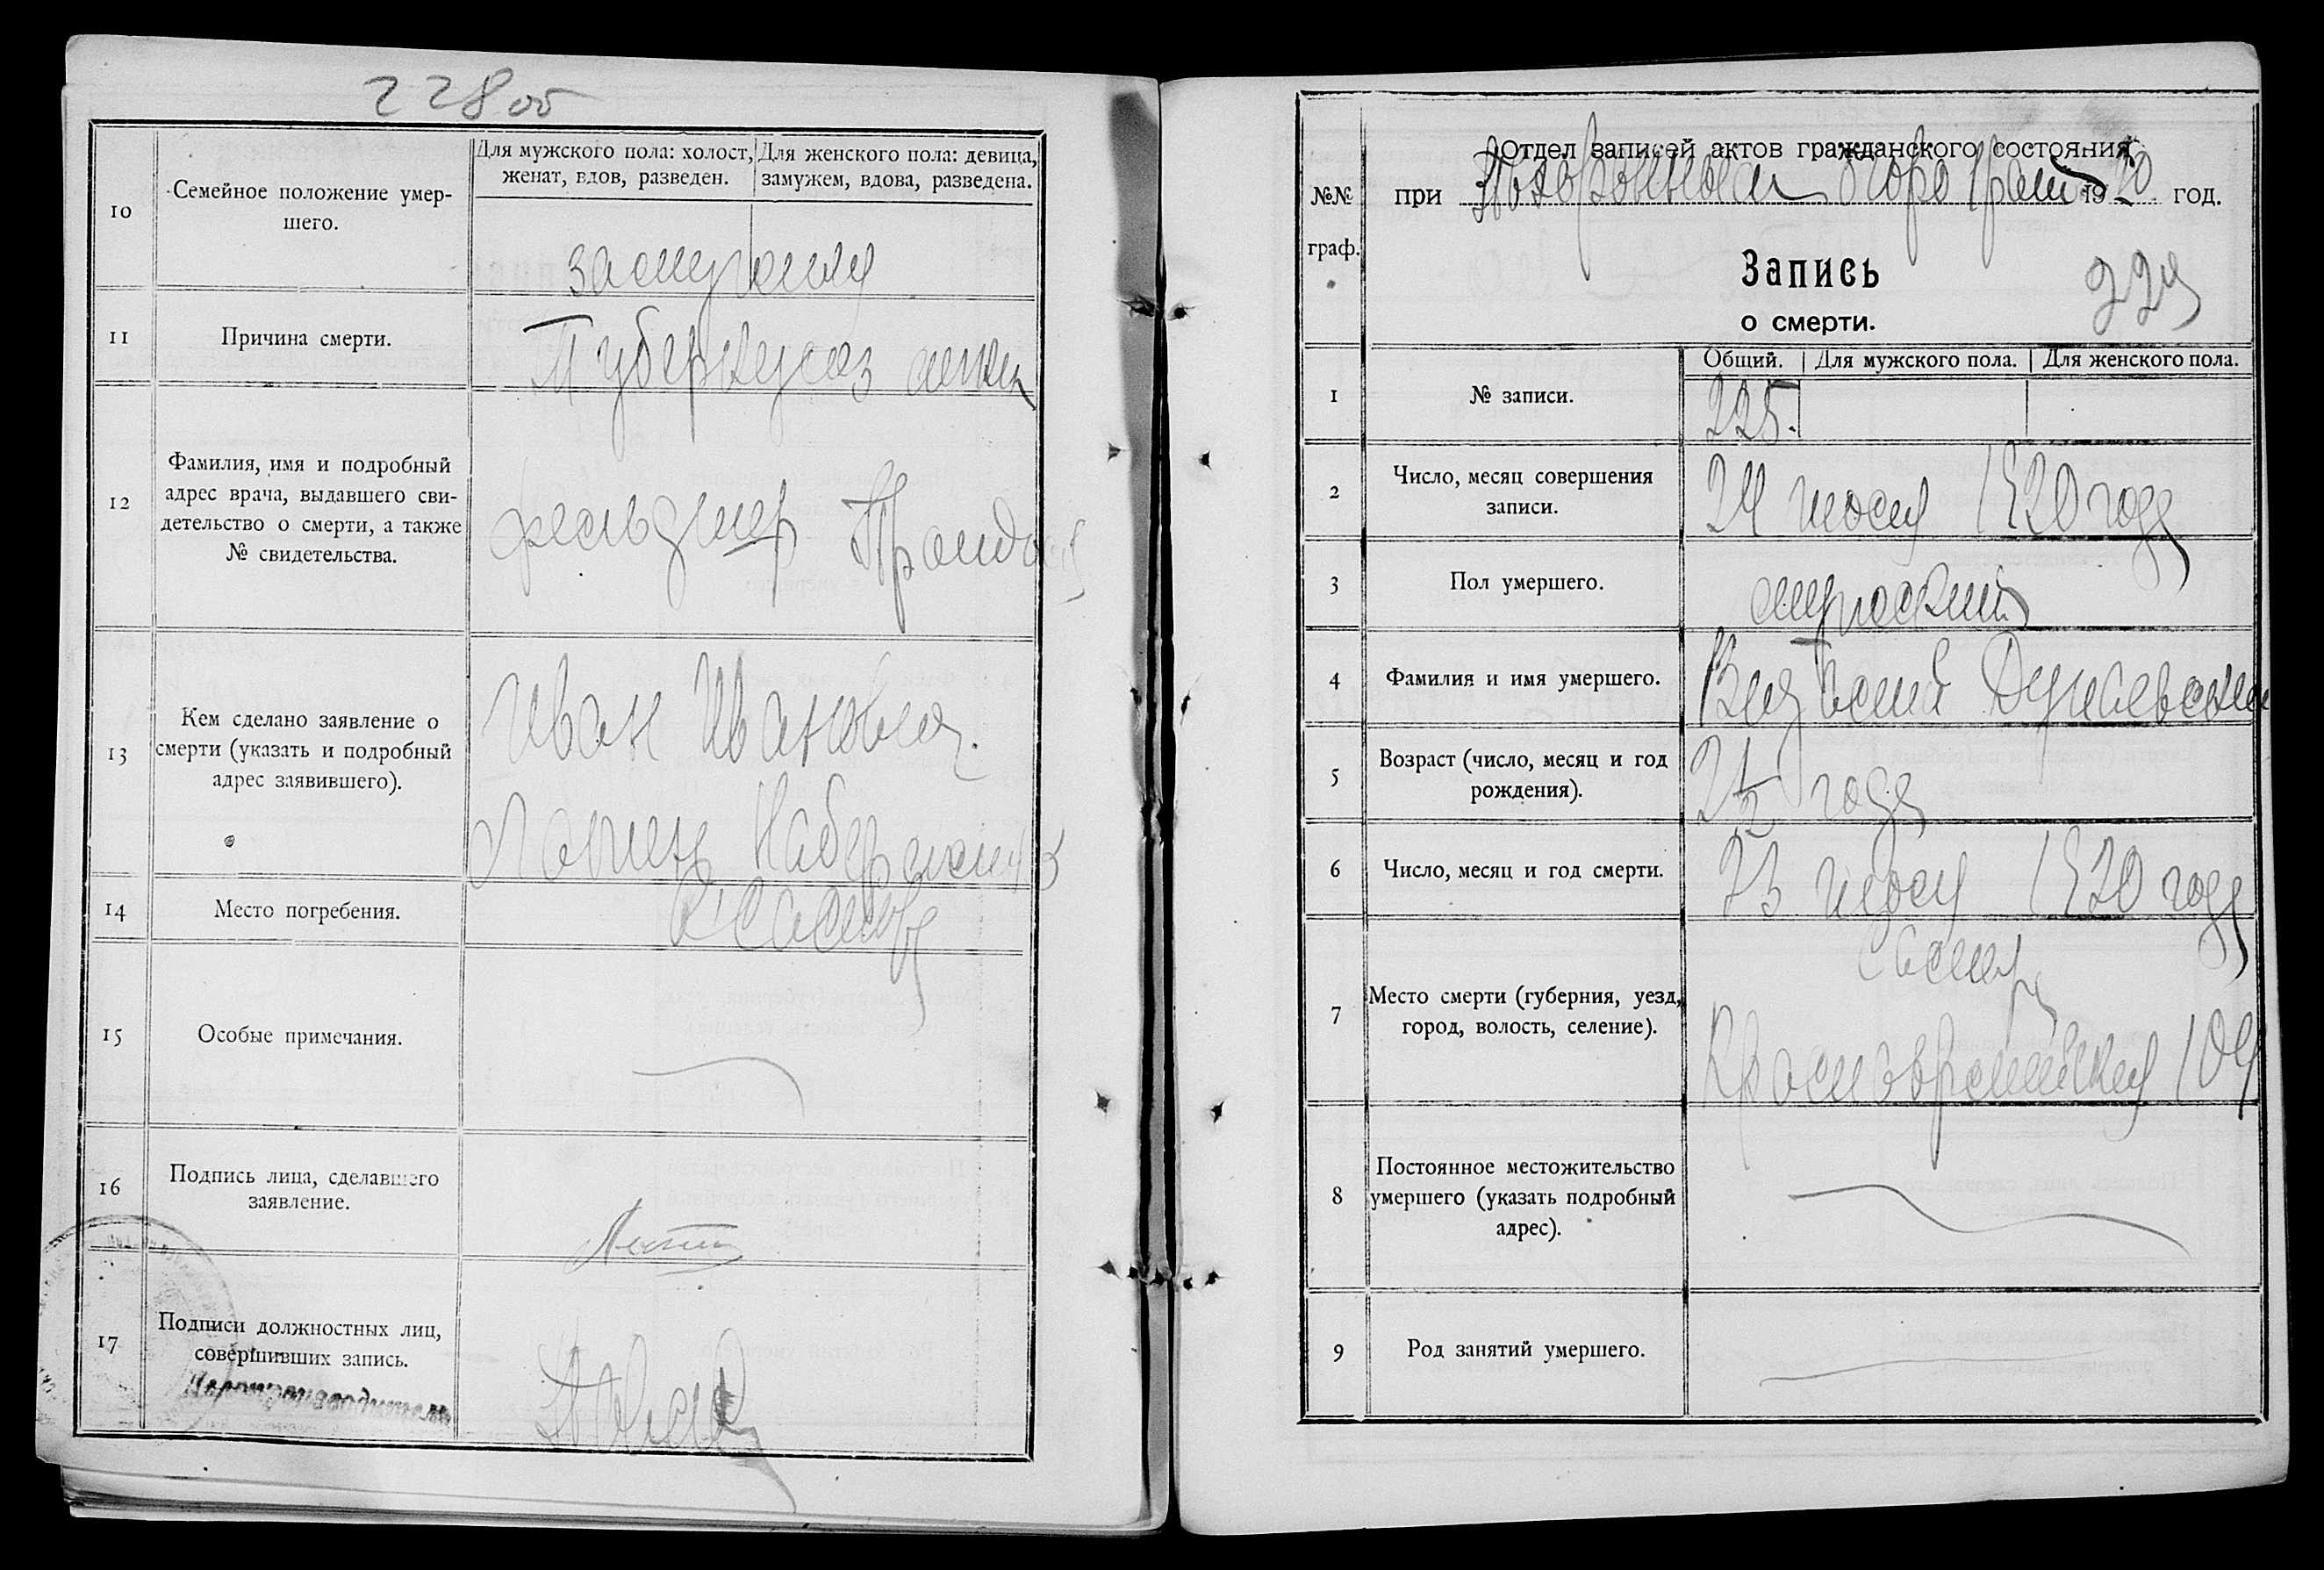 228 об
10
Семейное положение умер-
шего.
Для мужского пола: холост,
женат, вдов, разведен.
Для женского пола: девица,
замужем, вдова, разведена.
замужняя
11
Причина смерти.
Туберкулез
12
Фамилия, имя и подробный
адрес врача, выдавшего сви-
детельство о смерти, а также
№ свидетельства.
фельдшер
13
Кем сделано заявление о
смерти (указать и подробный
адрес заявившего).
Иван Иванович
14
Место погребения.
15
Особые примечания.
16
Подпись лица, сделавшего
заявление.
17
Подписи должностных лиц,
совершивших запись.
Делопроизводитель
№№
граф.
Отдел записей актов гражданского состояния
при Похоронном бюро 1920 год.
Запись
о смерти.
229
Общий.
Для мужского пола.
Для женского пола.
1
№ записи.
225.
2
Число, месяц совершения
записи.
24 1920 года
3
Пол умершего.
мужской
4
Фамилия и имя умершего.
5
Возраст (число, месяц и год
рождения).
2 1/2 года
6
Число, месяц и год смерти.
23 1920 года
7
Место смерти (губерния, уезд,
город, волость, селение).
Самара
Красноармейская 104
8
Постоянное местожительство
умершего (указать подробный
адрес).
9
Род занятий умершего.